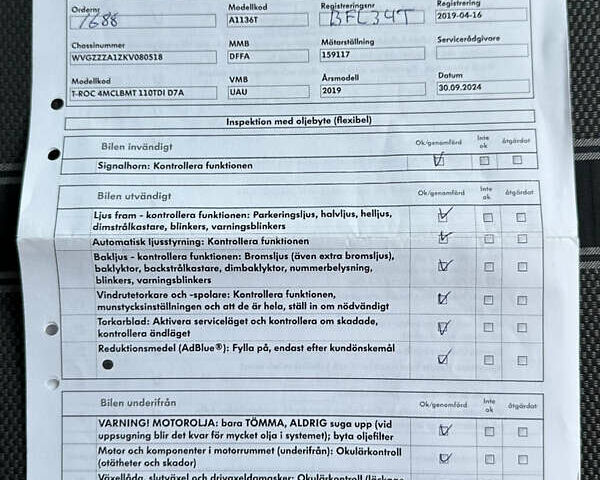 Ordernr Modellkod Registreringsnr Registrering
7688 A1136T BFL34T 2019-04-16
Chassinummer MMB Mätarställning Servicerådgivare
WVGZZZA1ZKV080518 DFFA 159117
Modellkod VMB Årsmodell Datum
T-ROC 4MCLBMT 110TDI D7A UAU 2019 30.09.2024
Inspektion med oljebyte (flexibel)
Bilen invändigt Ok/genomförd Inte ok åtgärdat
Signalhorn: Kontrollera funktionen
Bilen utvändigt Ok/genomförd Inte ok åtgärdat
Ljus fram - kontrollera funktionen: Parkeringsljus, halvljus, helljus,
dimstrålkastare, blinkers, varningsblinkers
Automatisk ljusstyrning: Kontrollera funktionen
Bakljus - kontrollera funktionen: Bromsljus (även extra bromsljus),
baklyktor, backstrålkastare, dimbaklyktor, nummerbelysning,
blinkers, varningsblinkers
Vindrutetorkare och -spolare: Kontrollera funktionen,
munstycksinställningen och att de är hela, ställ in om nödvändigt
Torkarblad: Aktivera serviceläget och kontrollera om skadade,
kontrollera ändläget
Reduktionsmedel (AdBlue®): Fylla på, endast efter kundönskemål
Bilen underifrån Ok/genomförd Inte ok åtgärdat
VARNING! MOTOROLJA: bara TÖMMA, ALDRIG suga upp (vid
uppsugning blir det kvar för mycket olja i systemet); byta oljefilter
Motor och komponenter i motorrummet (underifrån): Okulärkontroll
(otätheter och skador)
Växellåda, slutväxel och drivaxeldamasker: Okulärkontroll (läckage